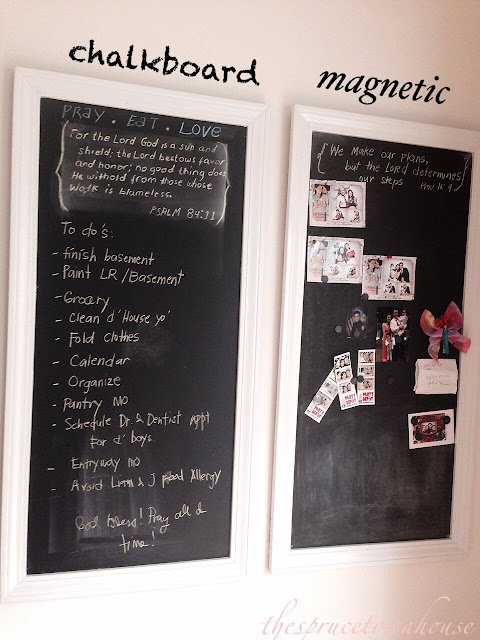 chalkboard
PRAY . EAT . LOVE
For the Lord God is a sun and
shield; the Lord bestows favor
and honor; no good thing does
He withold from those whose
walk is blameless.
PSALM 84:11
To do's:
- finish basement
- Paint LR/Basement
- Grocery
- Clean d' House yo'
- Fold Clothes
- Calendar
- Organize
- Pantry MO
- Schedule Dr & Dentist Appt
For d' boys
- Entryway MO
- Avoid & J Food Allergy
God bless! Pray all d
time!
magnetic
We Make our plans,
but the LORD determines
our steps
PARTY
thesprucetownhouse